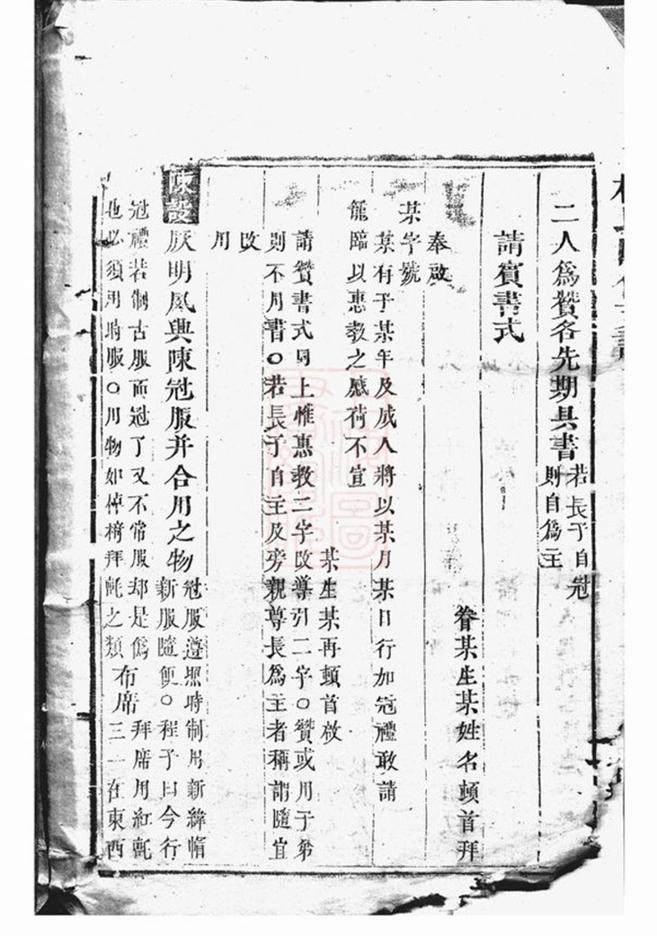 二人爲贊各先期具書若長子自冠則自爲主
請賓書式
眷某生某姓名頓首拜
奉啟
某字號
某有子某年及成人將以某月某日行加冠禮敢請
寵臨以惠教之感荷不宣
某生某再頓首啟
請贊書式同上惟惠教二字改導引二字○贊或用子弟
則不用書○若長子自主及旁親尊長爲主者稱謂隨宜
改
用
陳設厥明夙興陳冠服并合用之物冠服遵照時制用新緯帽新服隨便○程子曰今行
冠禮若制古服而冠冠了又不常服却是僞也必須用時服○用物如棹椅拜氈之類布席拜席用紅氈三一在東西